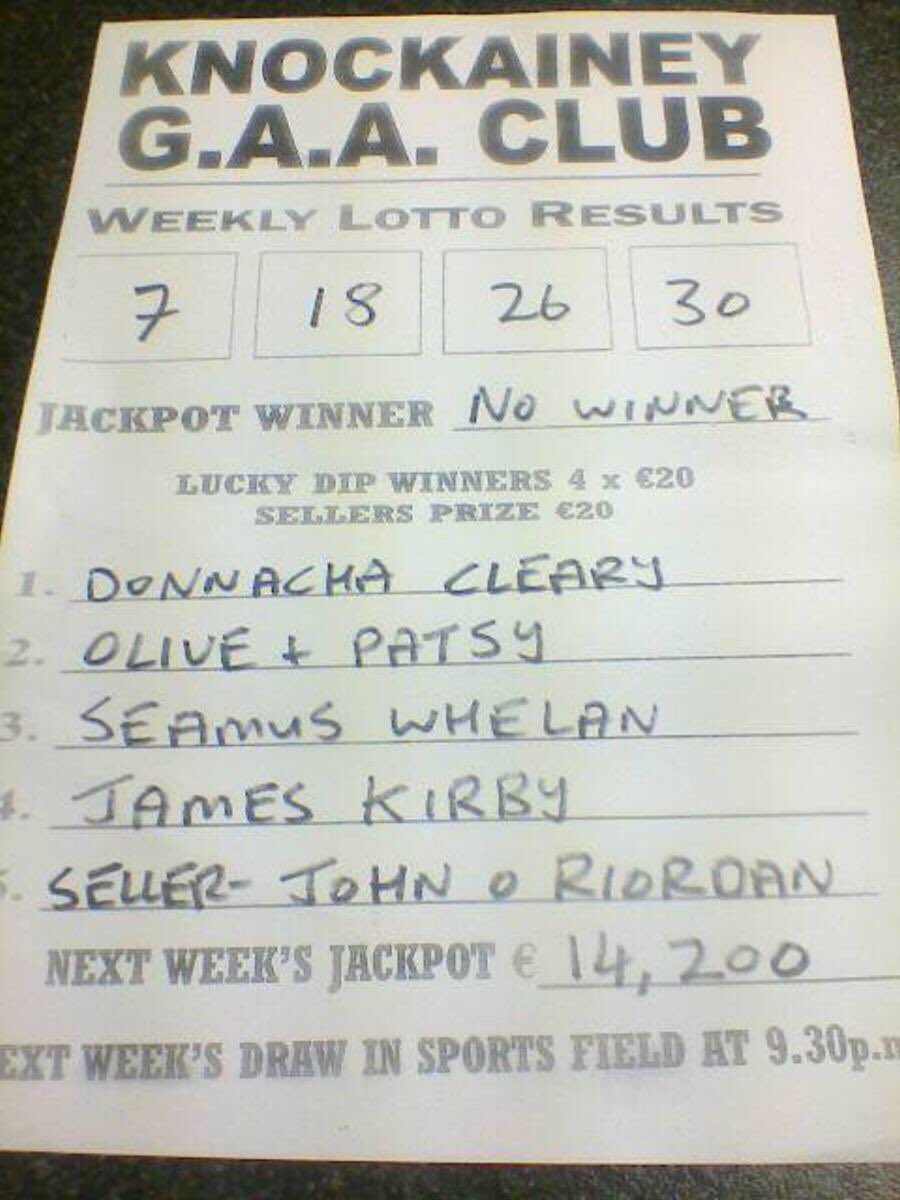 KNOCKAINEY
G.A.A. CLUB
WEEKLY LOTTO RESULTS
7 18 26 30
JACKPOT WINNER NO WINNER
LUCKY DIP WINNERS 4 x €20
SELLERS PRIZE €20
1. DONNACHA CLEARY
2. OLIVE + PATSY
3. SEAMUS WHELAN
4. JAMES KIRBY
5. SELLER- JOHN O RIORDAN
NEXT WEEK'S JACKPOT € 14,200
EXT WEEK'S DRAW IN SPORTS FIELD AT 9.30p.m